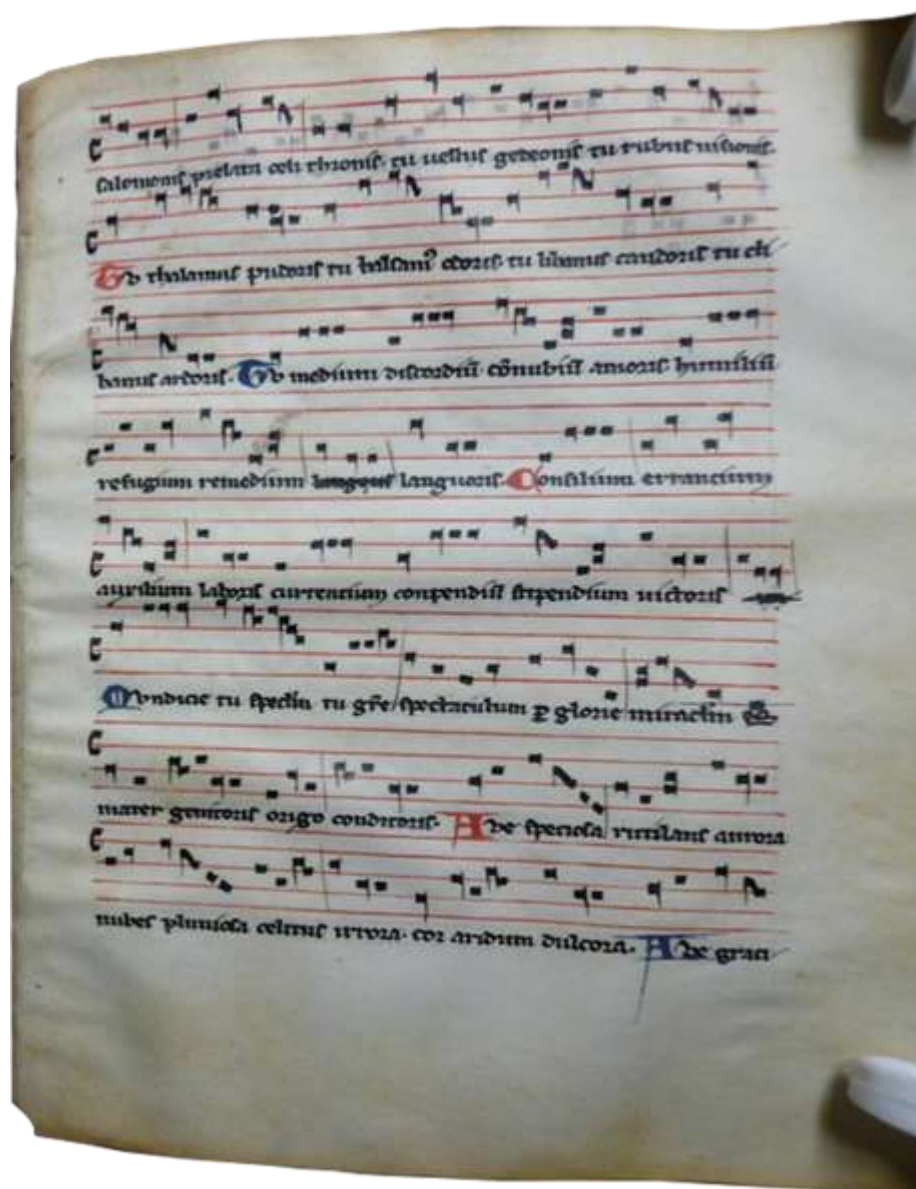 salomonis prelata celi thronis. tu uellus gedeonis tu rubus uisionis.
Tv thalamus pudoris tu balsam⁹ odoris. tu libanus candoris tu cli
banus ardoris. Tv medium discordiū cōnubiū amoris. humiliū
refugium remedium languoris. Consilium errancium
auxilium laboris currencium conpendiū stipendium uictoris
Mvndicie tu speclū tu gr̄e spectaculum ꝑ glorie miraclm
mater genitoris origo conditoris. Ave speciosa rutilans aurora
nubes pluuiosa celitus irrora. cor aridum dulcora. Ave graci